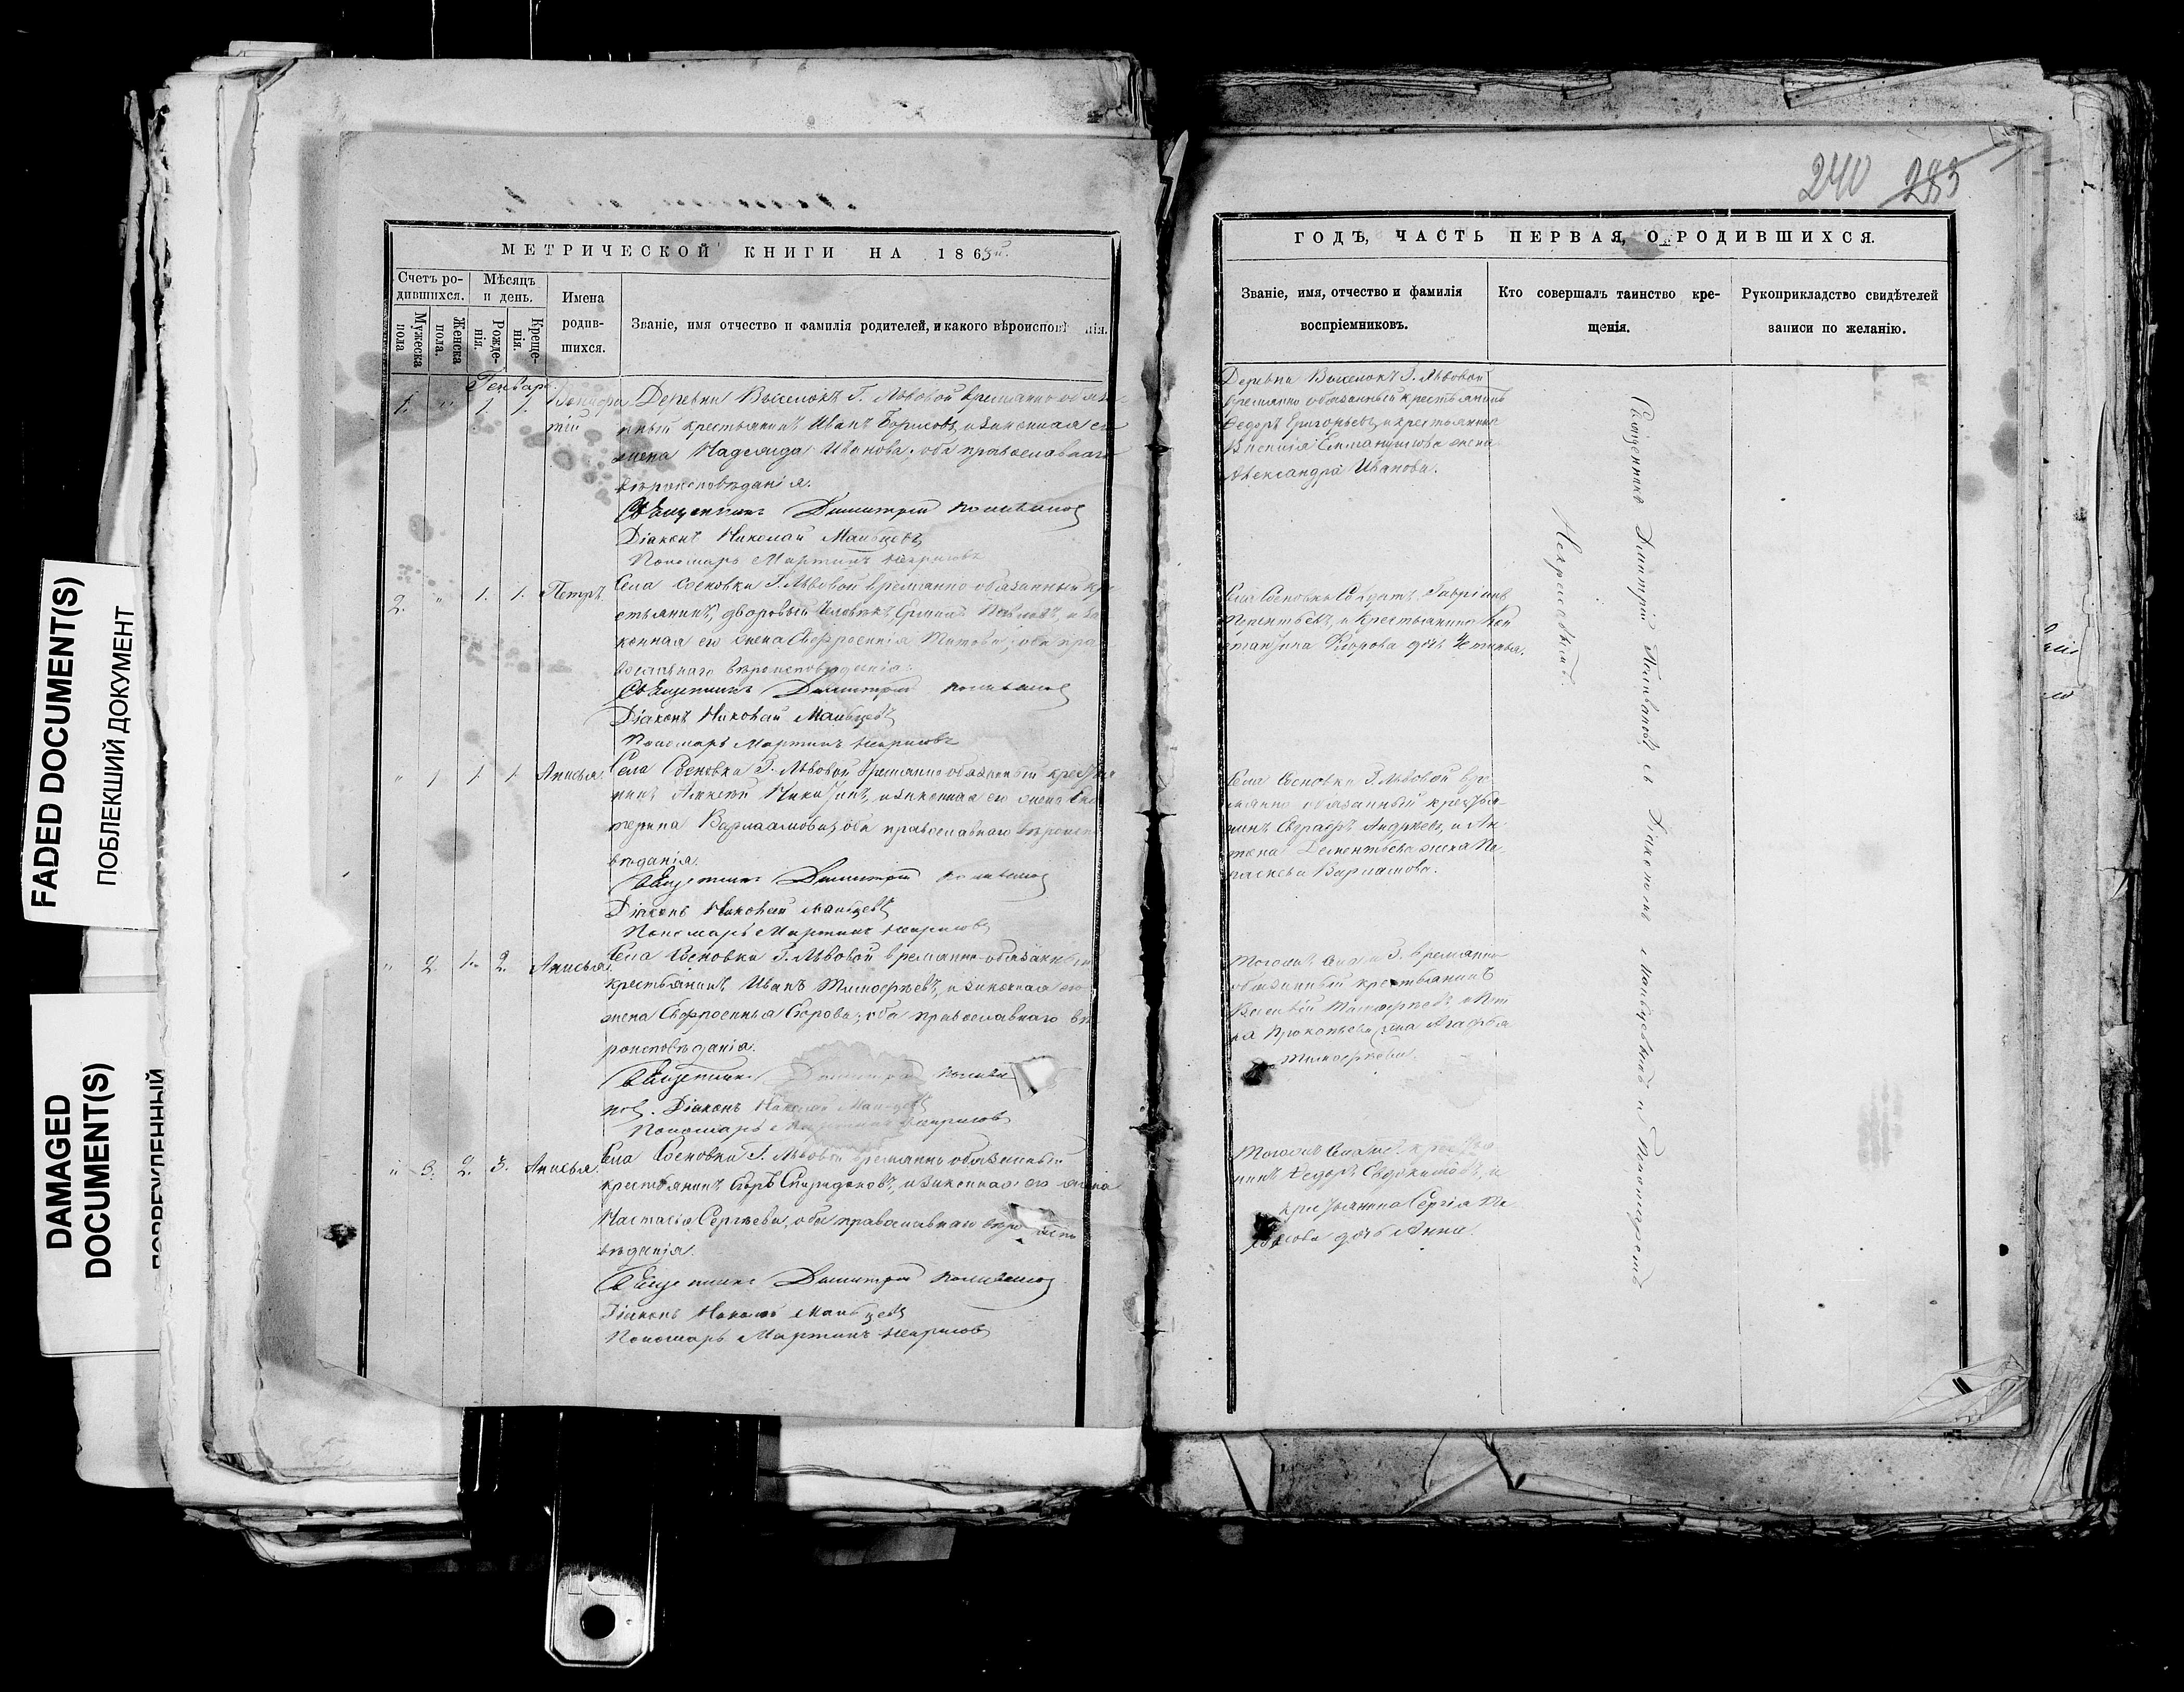 FADED DOCUMENT(S)
ПОБЛЕКШИЙ ДОКУМЕНТ
DAMAGED
DOCUMENT(S)
ПОВРЕЖДЕННЫЙ
МЕТРИЧЕСКОЙ КНИГИ НА 1863й.
Счетъ ро-
дившихся.
Мужеска
пола
Женска
пола.
Мѣсяцъ
и день.
Рожде-
нія.
Креще-
нія.
Имена
родив-
шихся.
Званіе, имя отчество и фамилія родителей, и какого вѣроиспов нія.
Генварь
1. " 1. 1.
Деревни Выселокъ Г. Львовой временно обяза-
нный крестьянинъ Иванъ Борисовъ, и законная его
жена Надежда Иванова; оба православнаго
вѣроисповѣданія.
Священникъ Димитрій Поливановъ
Діаконъ Николай Мальцевъ
Пономарь Мартинъ Некрасовъ
2. " 1. 1. Петръ.
Села Сосновки Г. Львовой временно-обязанный кре-
стьянинъ, дворовый человѣкъ, Павловъ, и за-
конная его жена Евфросинія Титова; оба пра-
вославнаго вѣроисповѣданія.
Священникъ Димитрій Поливановъ
Діаконъ Николай Мальцевъ
Пономарь Мартинъ Некрасовъ
" 1 1. 1. Анисья.
Села Сосновки Г. Львовой временно обязанный крестья
нинъ Алексѣй Никитинъ, и законная его жена Ека
терина Варлаамова; оба православнаго вѣроиспо
вѣданія.
Священникъ Димитрій Поливановъ
Діаконъ Николай Мальцевъ
Пономарь Мартинъ Некрасовъ
" 2. 1. 2. Анисья.
Села Сосновки Г. Львовой временно-обязанный
крестьянинъ Иванъ Тимофѣевъ, и законная его
жена Евфросинья Егорова; оба православнаго вѣ
роисповѣданія.
Священникъ Димитрій Полива
новъ. Діаконъ Николай Мальцевъ
Пономарь Мартинъ Некрасовъ
" 3. 2. 3. Анисья.
Села Сосновки Г. Львовой временно обязанный
крестьянинъ Егоръ Спиридоновъ, и законная его жена
Настасія Сергѣева, оба православнаго вѣро испо
вѣданія.
Священникъ Димитрій Поливановъ
Діаконъ Николай Мальцевъ
Пономарь Мартинъ Некрасовъ
240 283
ГОДЪ, ЧАСТЬ ПЕРВАЯ, О РОДИВШИХСЯ.
Званіе, имя, отчество и фамилія
воспріемниковъ.
Кто совершалъ таинство кре-
щенія.
Рукоприкладство свидѣтелей
записи по желанію.
Деревни Выселокъ Г. Львовой
временно обязанный крестьянинъ
Федоръ Григорьевъ, и крестьянина
жена
Александра Иванова.
Села Сосновки Солдатъ Гавріилъ
и крестьянина
дочь Устинья.
Села Сосновки Г. Львовой вре-
менно обязанный крестья-
нинъ Андреевъ, и
Дементьева жена Пе-
лагѣева Варламова.
Тогожъ села и Г. временно
обязанный крестьянинъ
Василій Тимофеевъ
Прокопьева жена Агафья
Тимофеева.
Тогожъ села
нинъ Федоръ Евдокимовъ, и
крестьянина Сергія
дочь Анна.
Священникъ Димитрій Поливановъ съ Діакономъ Мальцевымъ и Пономаремъ
Некрасовымъ.